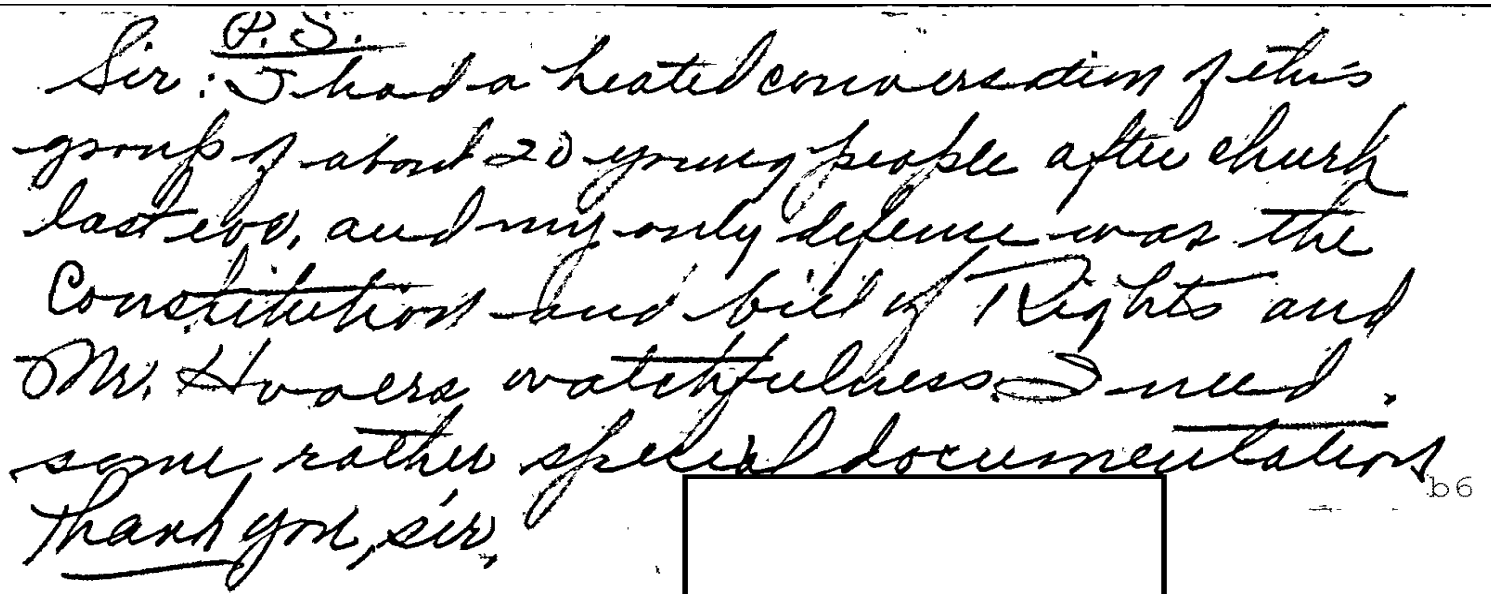 P.S.
Sir: I had a heated conversation of this
group of about 20 young people after church
last eve, and my only defense was the
Constitution and bill of Rights and
Mr. Hoovers watchfulness. I need
some rather special documentation
b6
Thank you, sir,